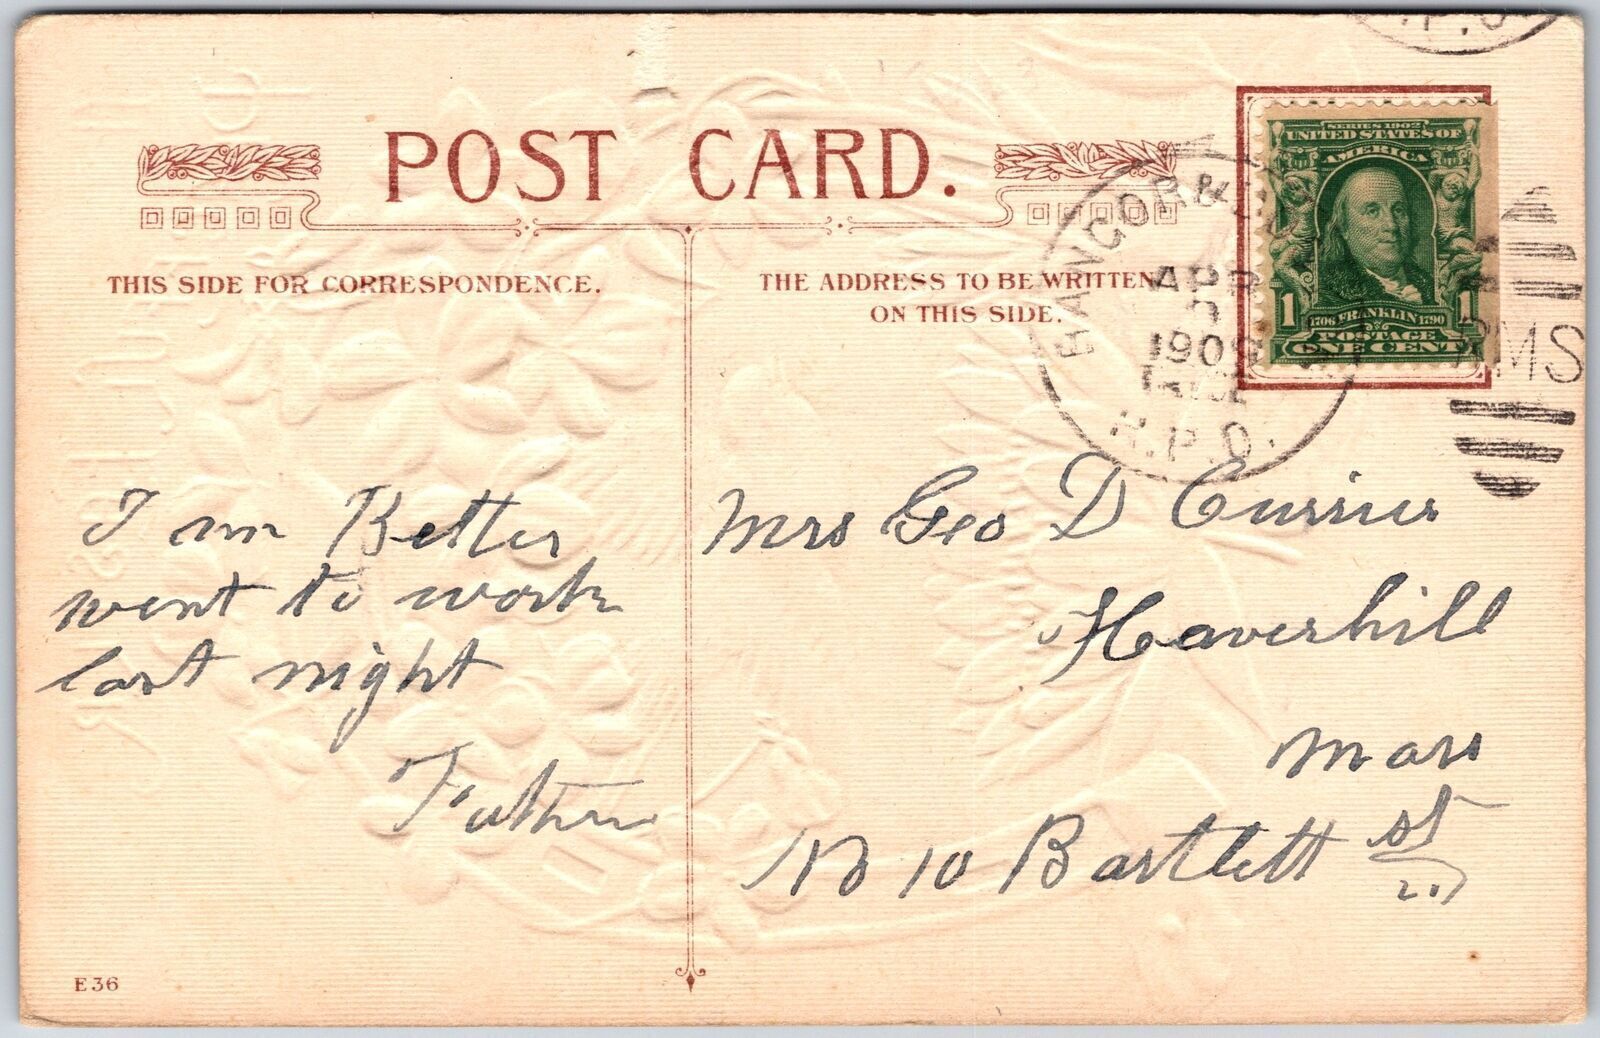 POST CARD.
THIS SIDE FOR CORRESPONDENCE.
THE ADDRESS TO BE WRITTEN
ON THIS SIDE.
SERIES 1902
UNITED STATES OF
AMERICA
1 1
1706 FRANKLIN 1790
POSTAGE
ONE CENT
BANGOR &
APR
190
R.P.O.
RMS
I am Better
went to work
last night
Father
Mrs Geo D Currier
Haverhill
Mass
No 10 Bartlett st
E36